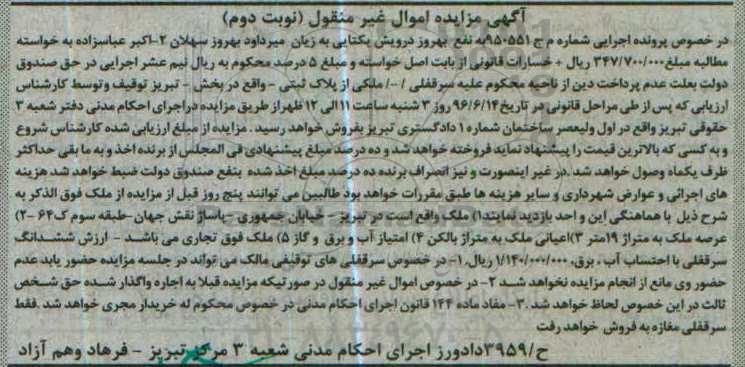 آگهی مزایده اموال غیر منقول (نوبت دوم)
در خصوص پرونده اجرایی شماره م ج ۹۵۰۵۵۱به نفع بهروز درویش یکتایی به زیان میرداود بهروز سهلان ۲-اکبر عباسزاده به خواسته
مطالبه مبلغ۳۴۷/۷۰۰/۰۰۰ ریال + خسارات قانونی از بابت اصل خواسته و مبلغ ۵ درصد محکوم به ریال نیم عشر اجرایی در حق صندوق
دولت بعلت عدم پرداخت دین از ناحیه محکوم علیه سرقفلی /-/ ملکی از پلاک ثبتی - واقع در بخش - تبریز توقیف وتوسط کارشناس
ارزیابی که پس از طی مراحل قانونی در تاریخ۹۶/۶/۱۴ روز ۳ شنبه ساعت ۱۱الی ۱۲ ظهراز طریق مزایده دراجرای احکام مدنی دفتر شعبه ۳
حقوقی تبریز واقع در اول ولیعصر ساختمان شماره ۱ دادگستری تبریز بفروش خواهد رسید . مزایده از مبلغ ارزیابی شده کارشناس شروع
و به کسی که بالاترین قیمت را پیشنهاد نماید فروخته خواهد شد و ده درصد مبلغ پیشنهادی فی المجلس از برنده اخذ و به ما بقی حداکثر
ظرف یکماه وصول خواهد شد .در غیر اینصورت و نیز انصراف برنده ده درصد مبلغ اخذ شده بنفع صندوق دولت ضبط خواهد شد هزینه
های اجرائی و عوارض شهرداری و سایر هزینه ها طبق مقررات خواهد بود طالبین می توانند پنج روز قبل از مزایده از ملک فوق الذکر به
شرح ذیل با هماهنگی این و احد بازدید نمایند۱) ملک واقع است در تبریز - خیابان جمهوری - پاساژ نقش جهان -طبقه سوم ک۶۴ -۲)
عرصه ملک به متراژ ۱۹متر ۳)اعیانی ملک به متراژ بالکن ۴) امتیاز آب و برق و گاز ۵) ملک فوق تجاری می باشد - ارزش ششدانگ
سرقفلی با احتساب آب ، برق، ۱/۱۴۰/۰۰۰/۰۰۰ ریال، ۱- در خصوص سرقفلی های توقیفی مالک می تواند در جلسه مزایده حضور یابد عدم
حضور وی مانع از انجام مزایده نخواهد شد ۲- در خصوص اموال غیر منقول در صورتیکه مزایده قبلا به اجاره واگذار شده حق شخص
ثالث در این خصوص لحاظ خواهد شد .۳- مفاد ماده ۱۴۴ قانون اجرای احکام مدنی در خصوص محکوم له خریدار مجری خواهد شد .فقط
سرقفلی مغازه به فروش خواهد رفت
ح/۳۹۵۹دادورز اجرای احکام مدنی شعبه ۳ مرکز تبریز - فرهاد وهم آزاد